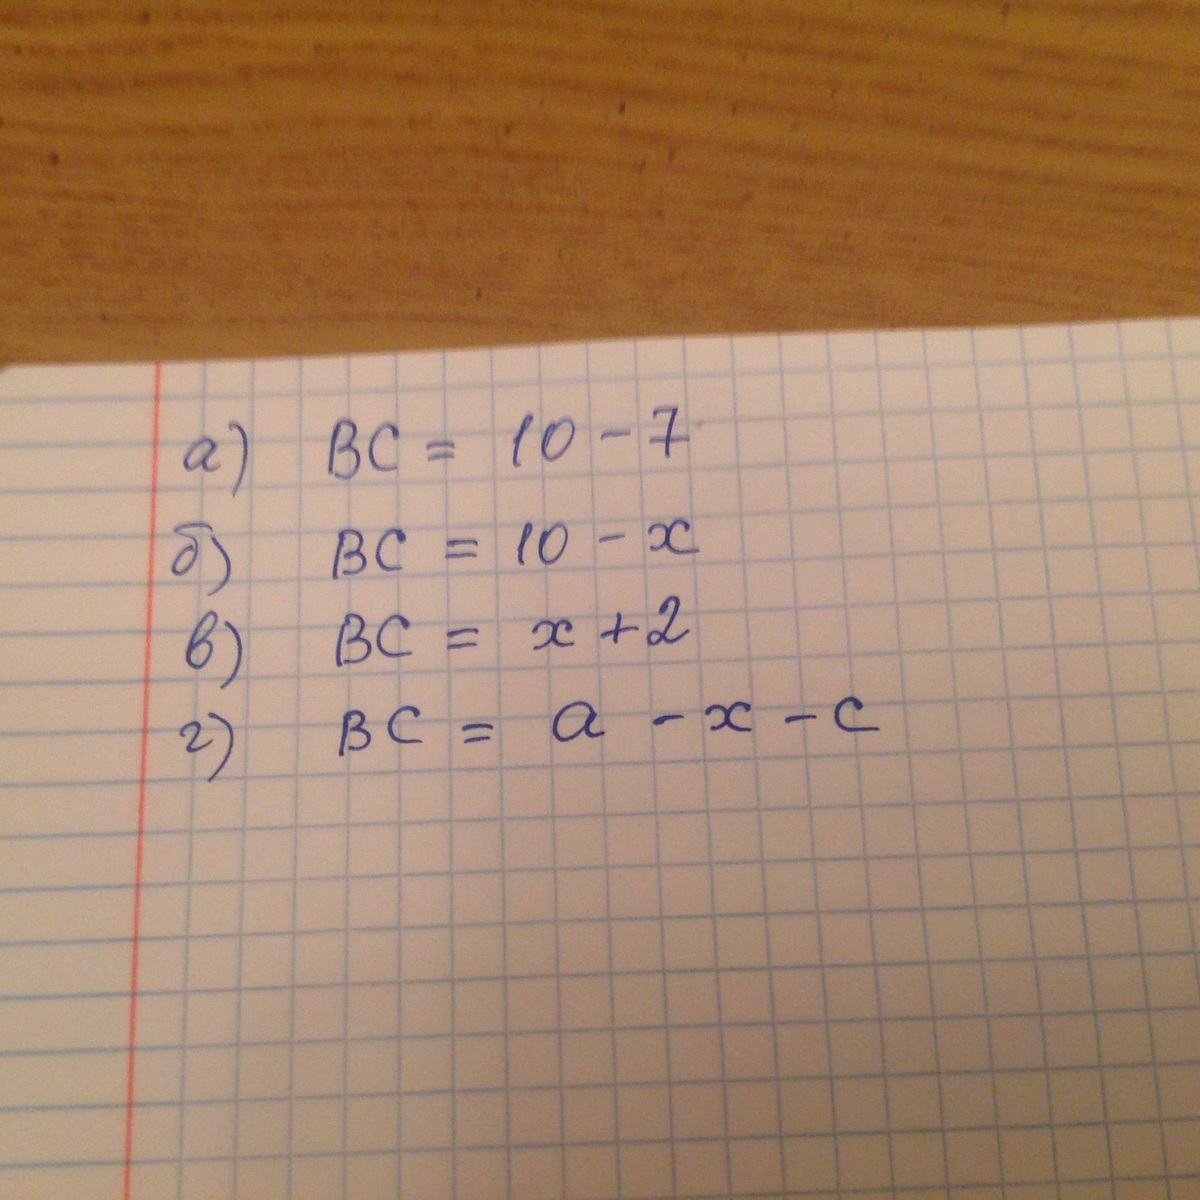 а) BC = 10 - 7
б) BC = 10 - x
в) BC = x + 2
г) BC = a - x - c